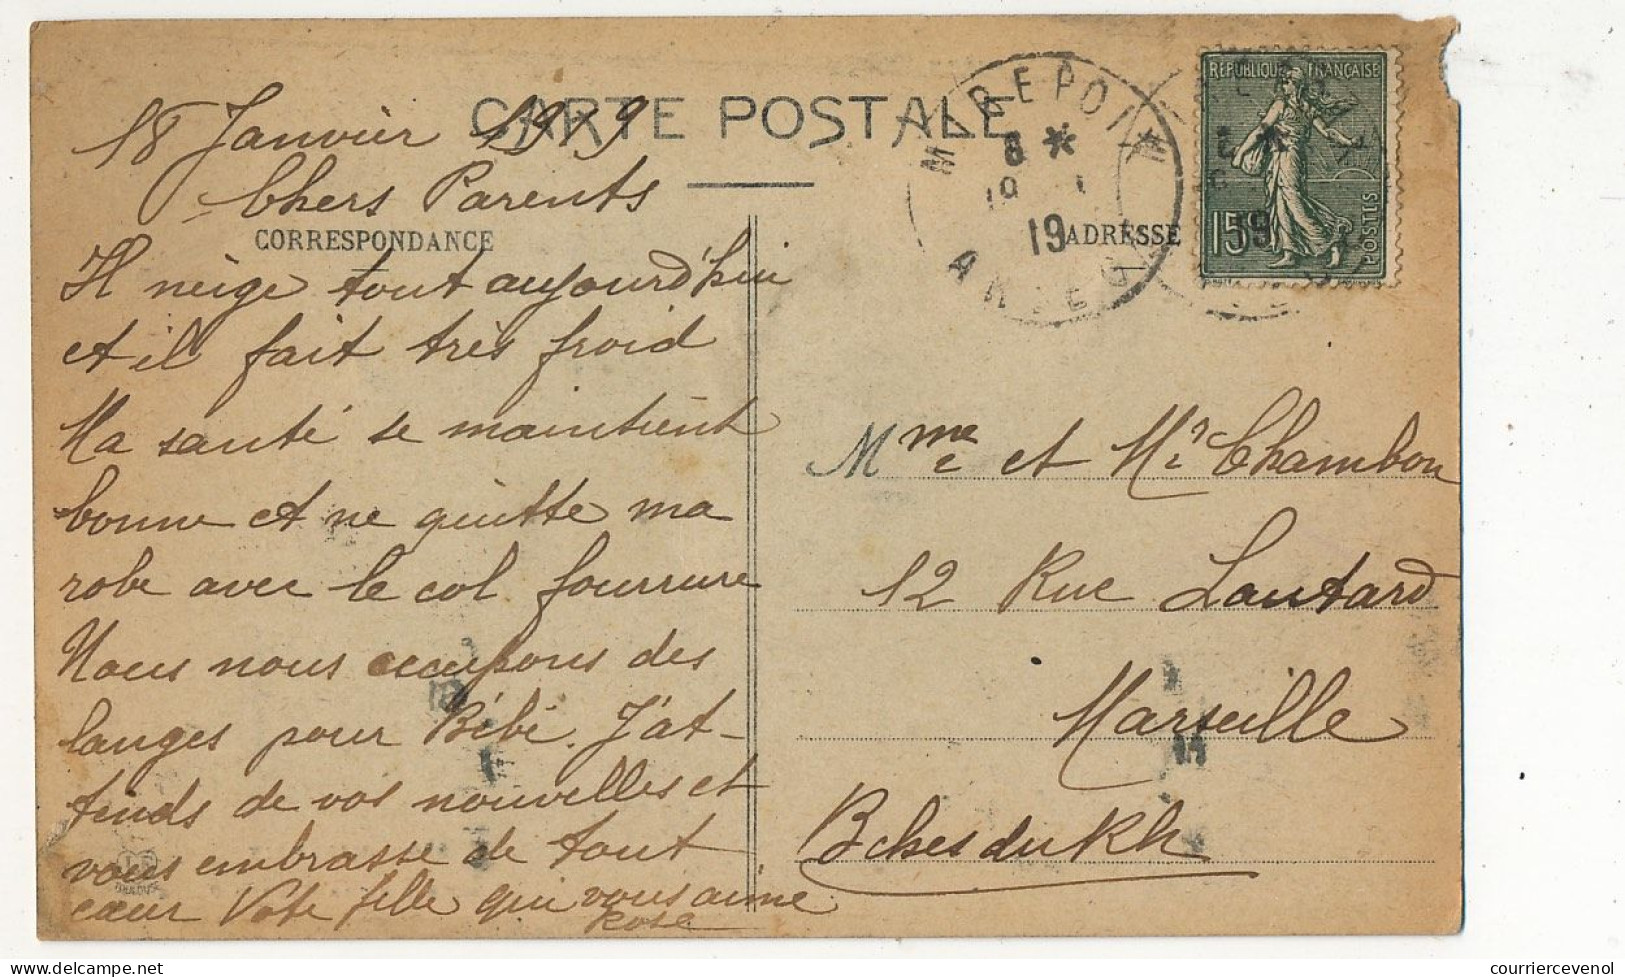 CARTE POSTALE
18 Janvier 1919
Chers Parents
CORRESPONDANCE
Il neige tout aujourd'hui
et il fait très froid
Ma santé se maintient
bonne et ne quitte ma
robe avec le col fourrure
Nous nous occupons des
langes pour Bébé. J'at-
tends de vos nouvelles et
vous embrasse de tout
cœur Vote fille qui vous aime
Rose
MIREPOIX
8 *
19 1
19
ARIEGE
REPUBLIQUE FRANÇAISE
15
POSTES
19
ADRESSE
Mme et Mr Chambon
12 Rue Lautard
Marseille
Bches du Rh
© delcampe.net
courriercevenol